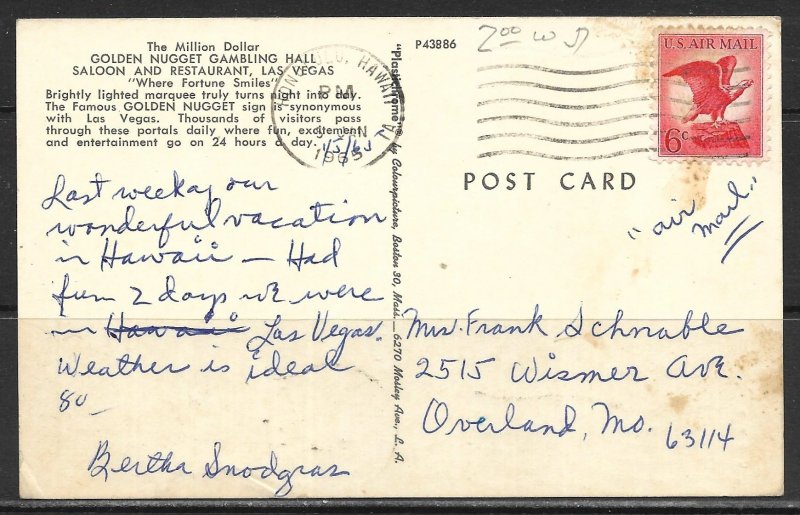 The Million Dollar
GOLDEN NUGGET GAMBLING HALL
SALOON AND RESTAURANT, LAS VEGAS
"Where Fortune Smiles"
Brightly lighted marquee truly turns night into day.
The Famous GOLDEN NUGGET sign is synonymous
with Las Vegas. Thousands of visitors pass
through these portals daily where fun, excitement
and entertainment go on 24 hours a day.
Last week of our
wonderful vacation
in Hawaii — Had
fun 2 days we were
in Hawaii Las Vegas.
Weather is ideal
80
Bertha Snodgras
HONOLULU, HAWAII
PM
JAN
1965
1/5/65
"Plastichrome" by Colourpicture, Boston 30, Mass. — 6270 Mosley Ave., L. A.
P43886
2.00
U.S. AIR MAIL
6c
POST CARD
"air
mail"
Mrs. Frank Schnable
2515 Wismer Ave.
Overland, Mo.
63114